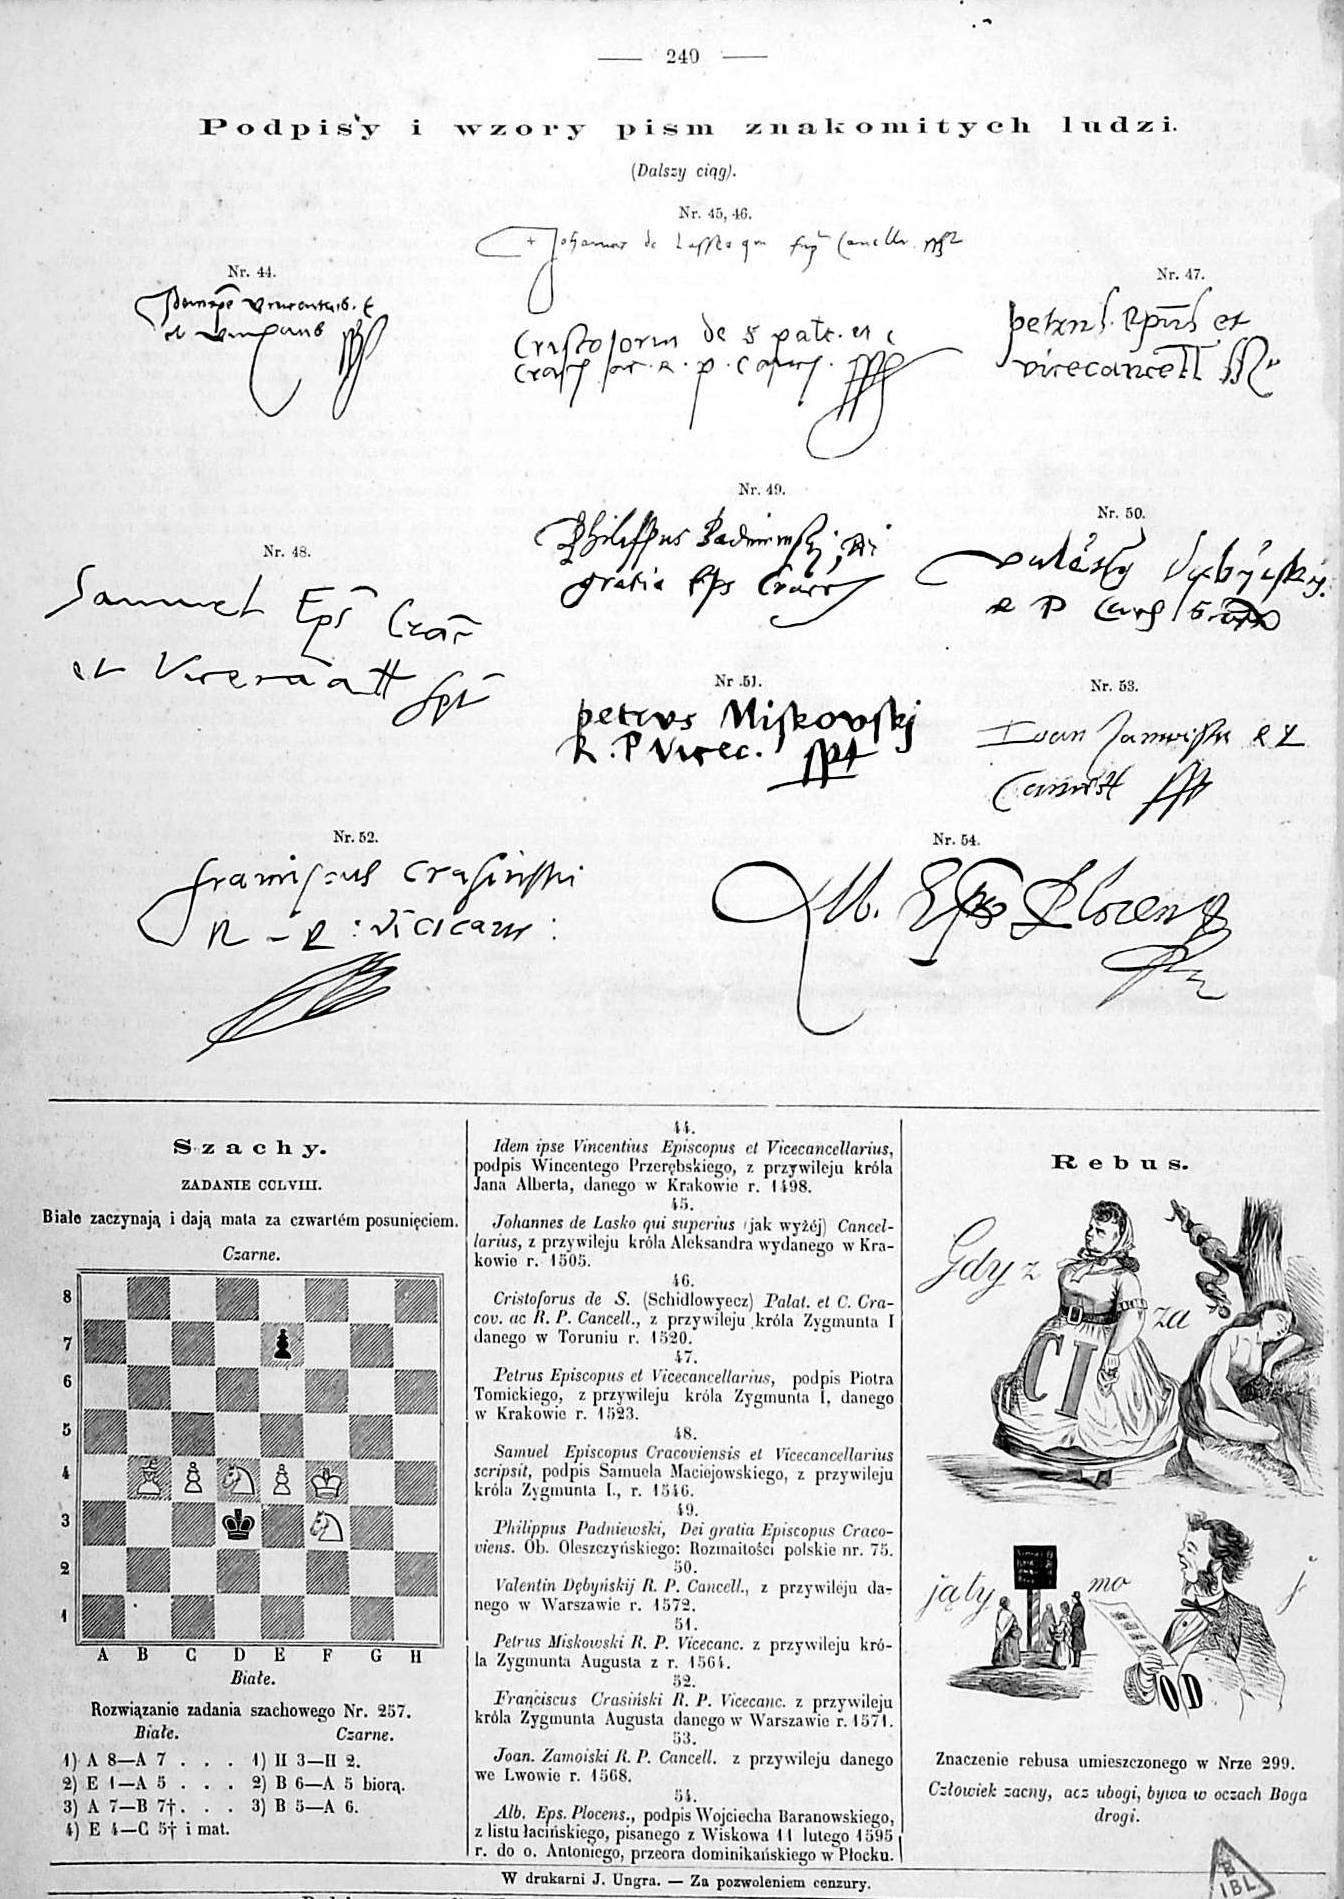 240
Podpisy i wzory pism znakomitych ludzi.
(Dalszy ciąg).
Nr. 45, 46.
Nr. 44.
Nr. 47.
petrus Epūs et
vicecancell
Nr. 49.
Nr. 50.
Nr. 48.
Samuel Eps Crac
et Vicecancell spt
Philippus Padniewskj Dei
gratia Eps Crac
R P Canc
Nr .51.
petrvs Miskovskj
R. P Vicec. sspt
Nr. 53.
Ioan Zamoiski R P
Cancell
Nr. 52.
Franciscus Crasinski
R - P : vicecanc :
Nr. 54.
Alb. Eps Plocens
Szachy.
ZADANIE CCLVIII.
Białe zaczynają i dają mata za czwartém posunięciem.
Czarne.
8
7
6
5
4
3
2
1
A B C D E F G H
Białe.
Rozwiązanie zadania szachowego Nr. 257.
Białe. Czarne.
1) A 8—A 7 . . . 1) H 3—H 2.
2) E 1—A 5 . . . 2) B 6—A 5 biorą.
3) A 7—B 7†. . . 3) B 5—A 6.
4) E 4—C 5† i mat.
44.
Idem ipse Vincentius Episcopus et Vicecancellarius,
podpis Wincentego Przerębskiego, z przywileju króla
Jana Alberta, danego w Krakowie r. 1498.
45.
Johannes de Lasko qui superius (jak wyżéj) Cancel-
larius, z przywileju króla Aleksandra wydanego w Kra-
kowie r. 1505.
46.
Cristoforus de S. (Schidlowyecz) Palat. et C. Cra-
cov. ac R. P. Cancell., z przywileju króla Zygmunta I
danego w Toruniu r. 1520.
47.
Petrus Episcopus et Vicecancellarius, podpis Piotra
Tomickiego, z przywileju króla Zygmunta I, danego
w Krakowie r. 1523.
48.
Samuel Episcopus Cracoviensis et Vicecancellarius
scripsit, podpis Samuela Maciejowskiego, z przywileju
króla Zygmunta I., r. 1546.
49.
Philippus Padniewski, Dei gratia Episcopus Craco-
viens. Ob. Oleszczyńskiego: Rozmaitości polskie nr. 75.
50.
Valentin Dębyńskij R. P. Cancell., z przywileju da-
nego w Warszawie r. 1572.
51.
Petrus Miskowski R. P. Vicecanc. z przywileju kró-
la Zygmunta Augusta z r. 1564.
52.
Franciscus Crasiński R. P. Vicecanc. z przywileju
króla Zygmunta Augusta danego w Warszawie r. 1571.
53.
Joan. Zamoiski R. P. Cancell. z przywileju danego
we Lwowie r. 1568.
54.
Alb. Eps. Plocens., podpis Wojciecha Baranowskiego,
z listu łacińskiego, pisanego z Wiskowa 11 lutego 1595
r. do o. Antoniego, przeora dominikańskiego w Płocku.
Rebus.
Gdy z
za
CI
ją ty
mo
j
OD
Znaczenie rebusa umieszczonego w Nrze 299.
Człowiek zacny, acz ubogi, bywa w oczach Boga
drogi.
W drukarni J. Ungra. — Za pozwoleniem cenzury.
B
IBL